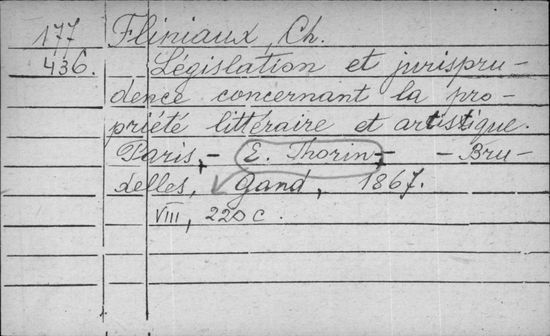 177 Fliniaux, Ch.
436. Législation et jurispru-
dence concernant la pro-
priété littéraire et artistique.
Paris, - E. Thorin, - - Bru-
xelles, Gand, 1867.
VIII, 220 c.